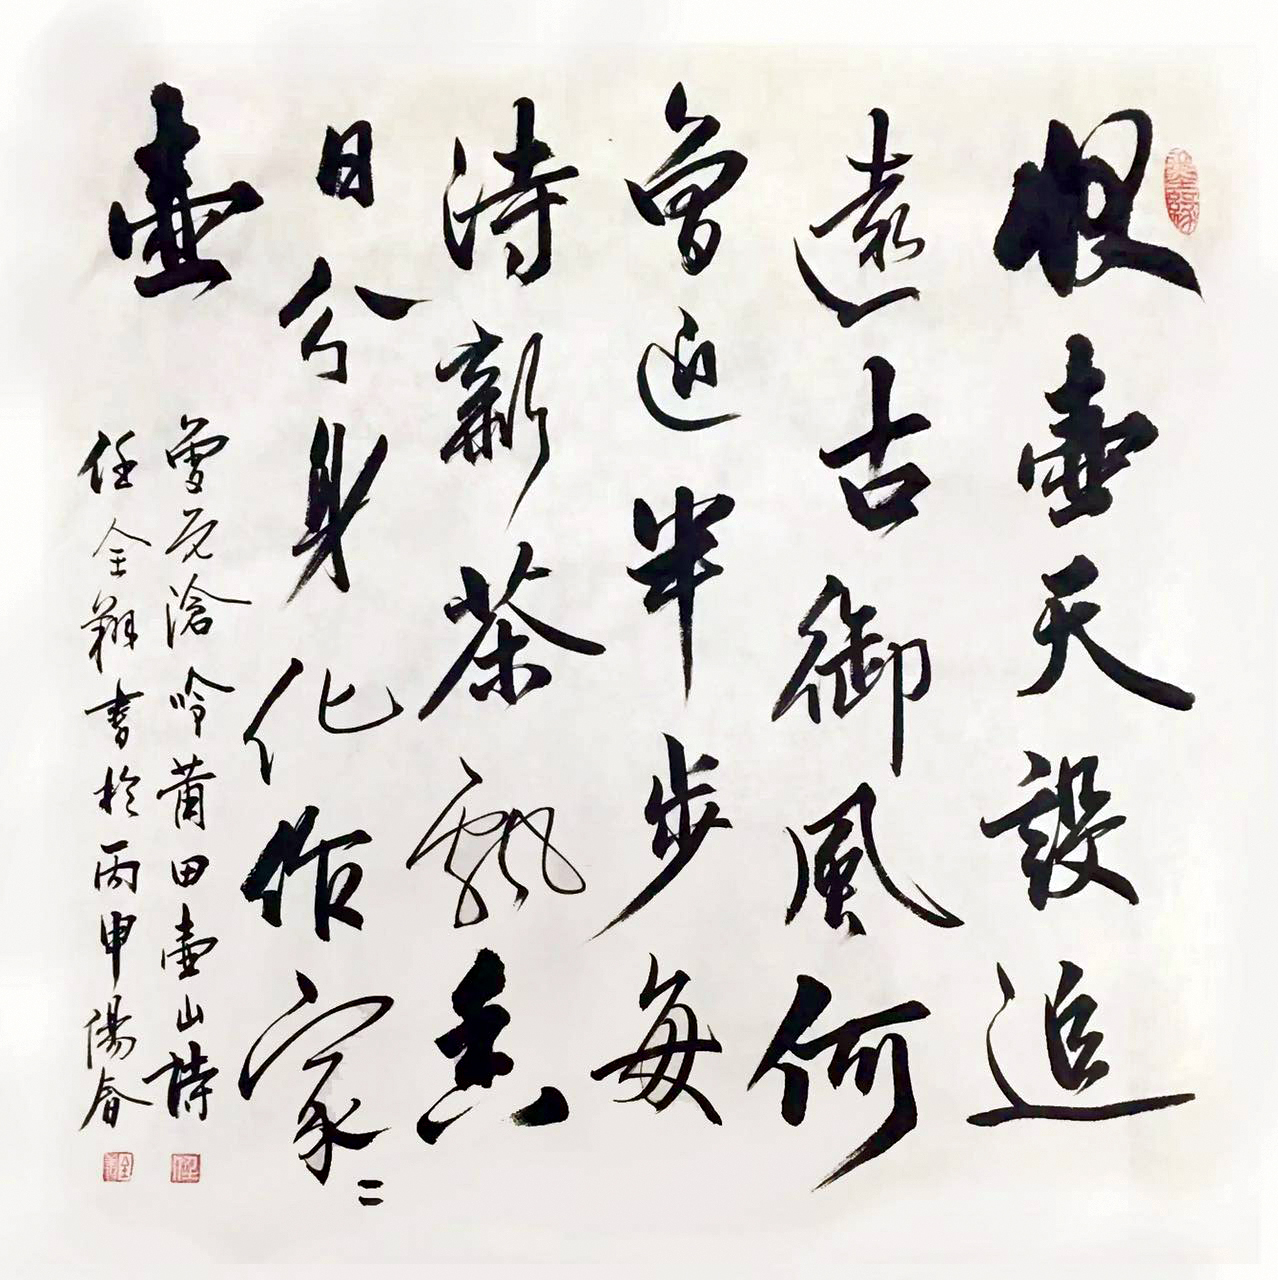 恨壺天設追
遠古御風何
曾近半步每
待新茶飄香
日分身化作家〻
壺
曾元滄吟莆田壺山詩
任全翔書於丙申陽春